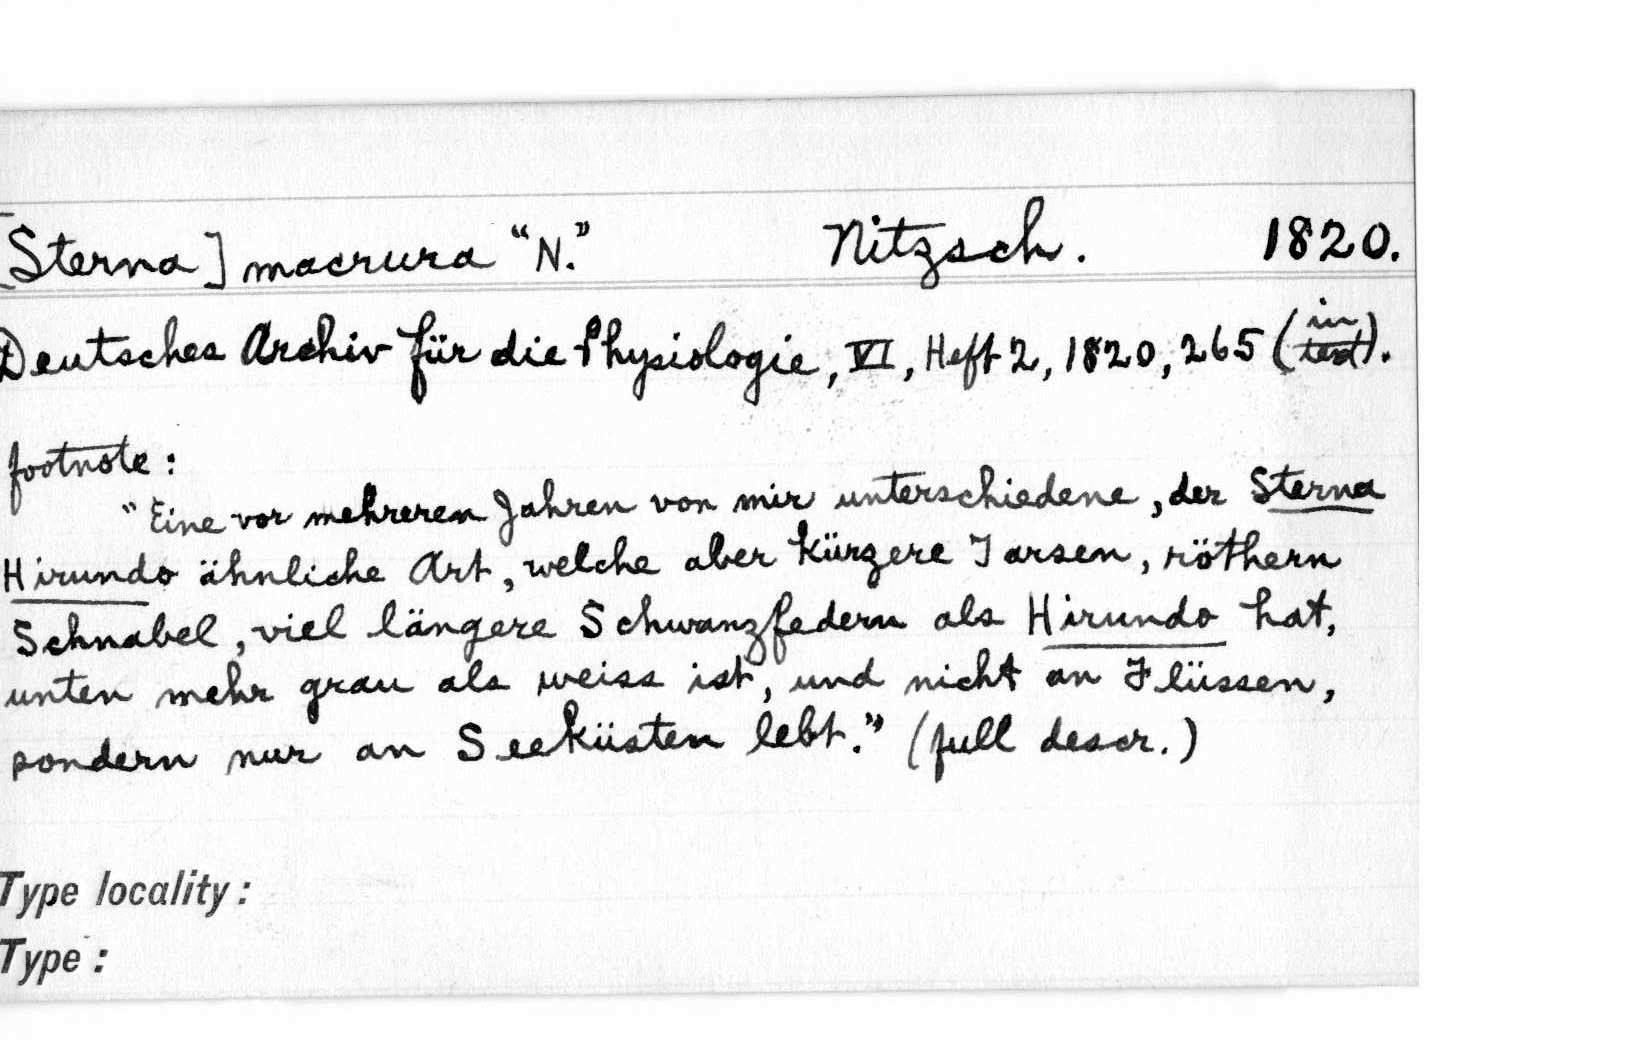 [Sterna] macrura "N." Nitzsch. 1820.
Deutsches Archiv für die Physiologie, VI, Heft 2, 1820, 265 (in text).
footnote:
"Eine vor mehreren Jahren von mir unterschiedene, der Sterna
Hirundo ähnliche Art, welche aber kürzere Tarsen, röthern
Schnabel, viel längere Schwanzfedern als Hirundo hat,
unten mehr grau als weiss ist, und nicht an Flüssen,
sondern nur an Seeküsten lebt." (full descr.)
Type locality:
Type: